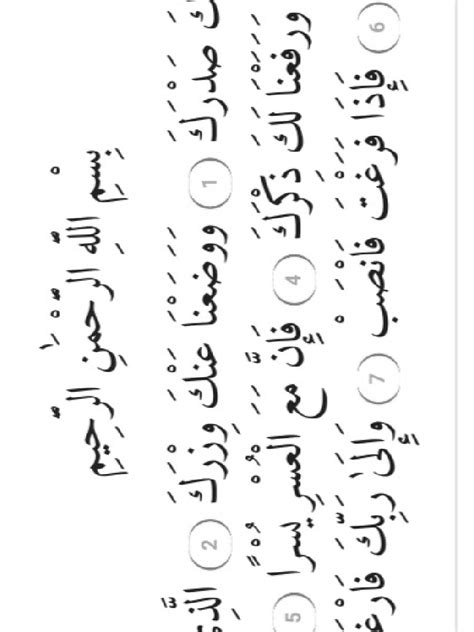 بِسْمِ اللَّهِ الرَّحْمَٰنِ الرَّحِيمِ
صَدْرَكَ (1) وَوَضَعْنَا عَنْكَ وِزْرَكَ (2)
وَرَفَعْنَا لَكَ ذِكْرَكَ (4) فَإِنَّ مَعَ الْعُسْرِ يُسْرًا (5)
(6) فَإِذَا فَرَغْتَ فَانْصَبْ (7) وَإِلَىٰ رَبِّكَ